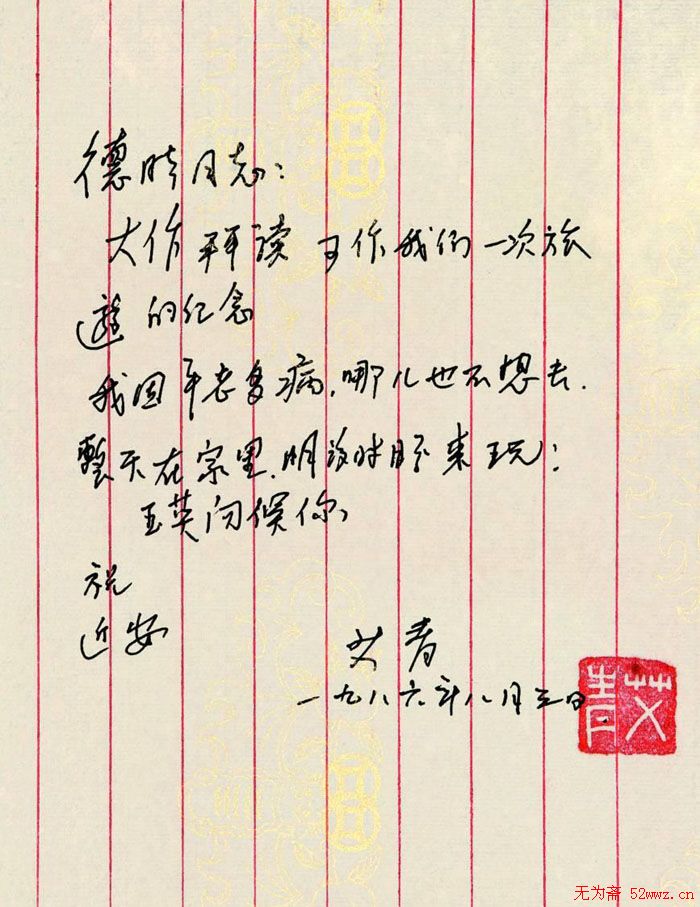 德明同志：
大作拜读 可作我们一次旅
遊的纪念
我因年老多病，哪儿也不想去．
整天在家里．明 时 来玩；
玉英问候你，
祝
近安
艾青
一九八六年八月三日
艾青
无为斋 52wwz.cn